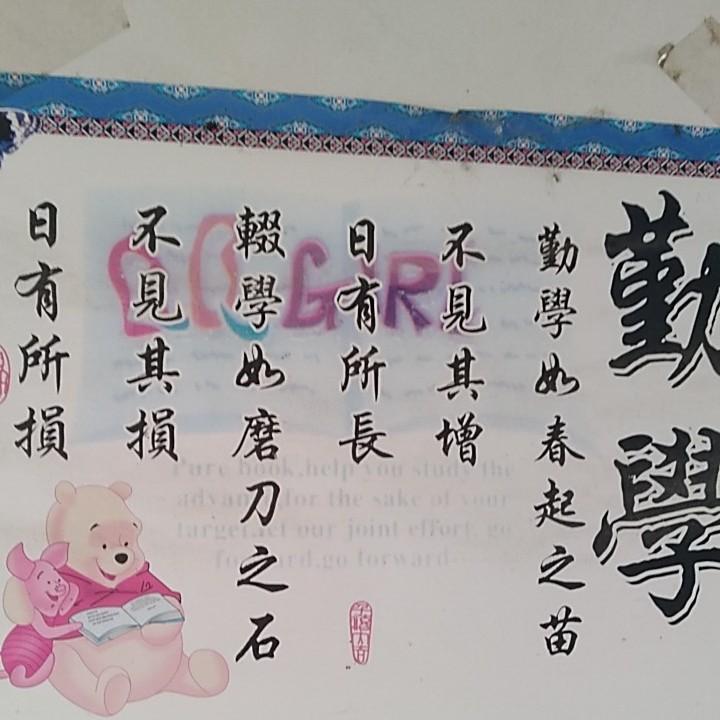 勤學
勤學如春起之苗
不見其增
日有所長
輟學如磨刀之石
不見其損
日有所損
GIRL
Pure book.help you study the
advance for the sake of your
target.act our joint effort, go
forward.go forward